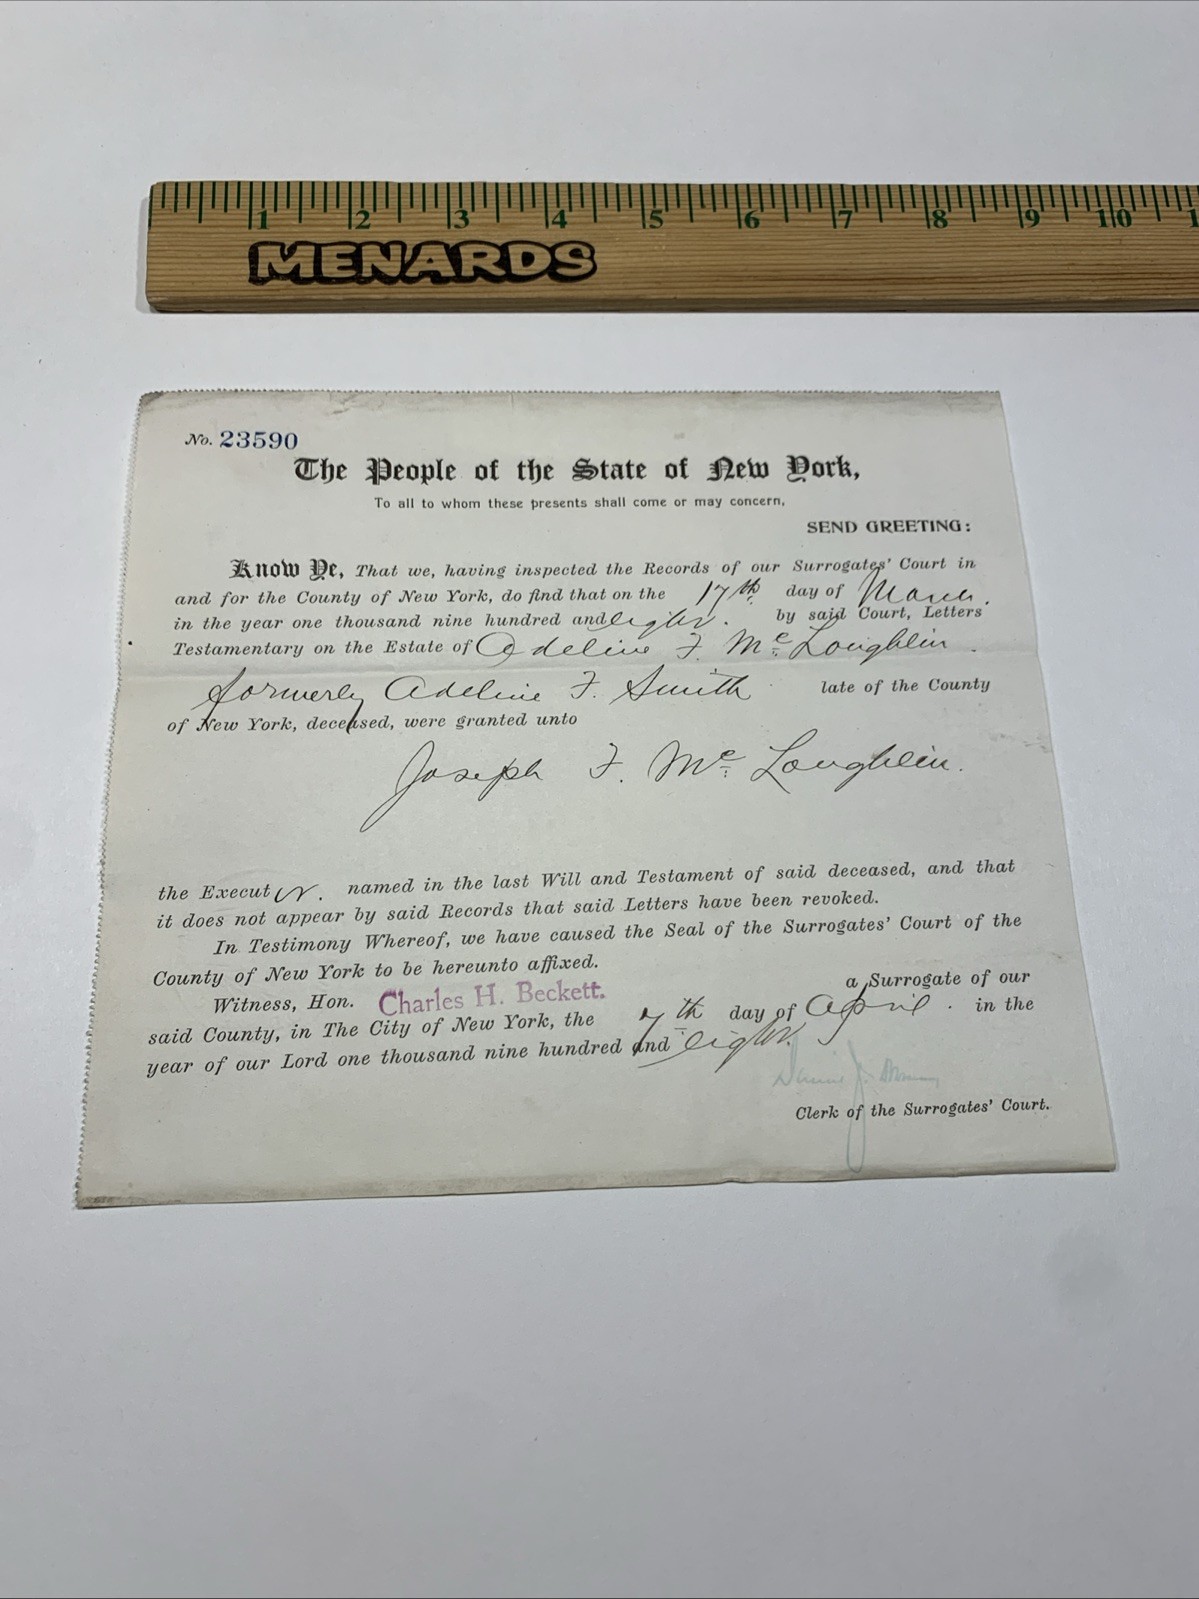 1 2 3 4 5 6 7 8 9 10 1
MENARDS
No. 23590
The People of the State of New York,
To all to whom these presents shall come or may concern,
SEND GREETING:
Know Ye, That we, having inspected the Records of our Surrogates' Court in
and for the County of New York, do find that on the 17th day of March.
in the year one thousand nine hundred and eight. by said Court, Letters
Testamentary on the Estate of Adeline F. Mc Loughlin.
formerly Adeline F. Smith late of the County
of New York, deceased, were granted unto
Joseph F. Mc Loughlin.
the Execut or. named in the last Will and Testament of said deceased, and that
it does not appear by said Records that said Letters have been revoked.
In Testimony Whereof, we have caused the Seal of the Surrogates' Court of the
County of New York to be hereunto affixed.
Witness, Hon. Charles H. Beckett. a Surrogate of our
said County, in The City of New York, the 7th day of April. in the
year of our Lord one thousand nine hundred and eight.
J.
Clerk of the Surrogates' Court.